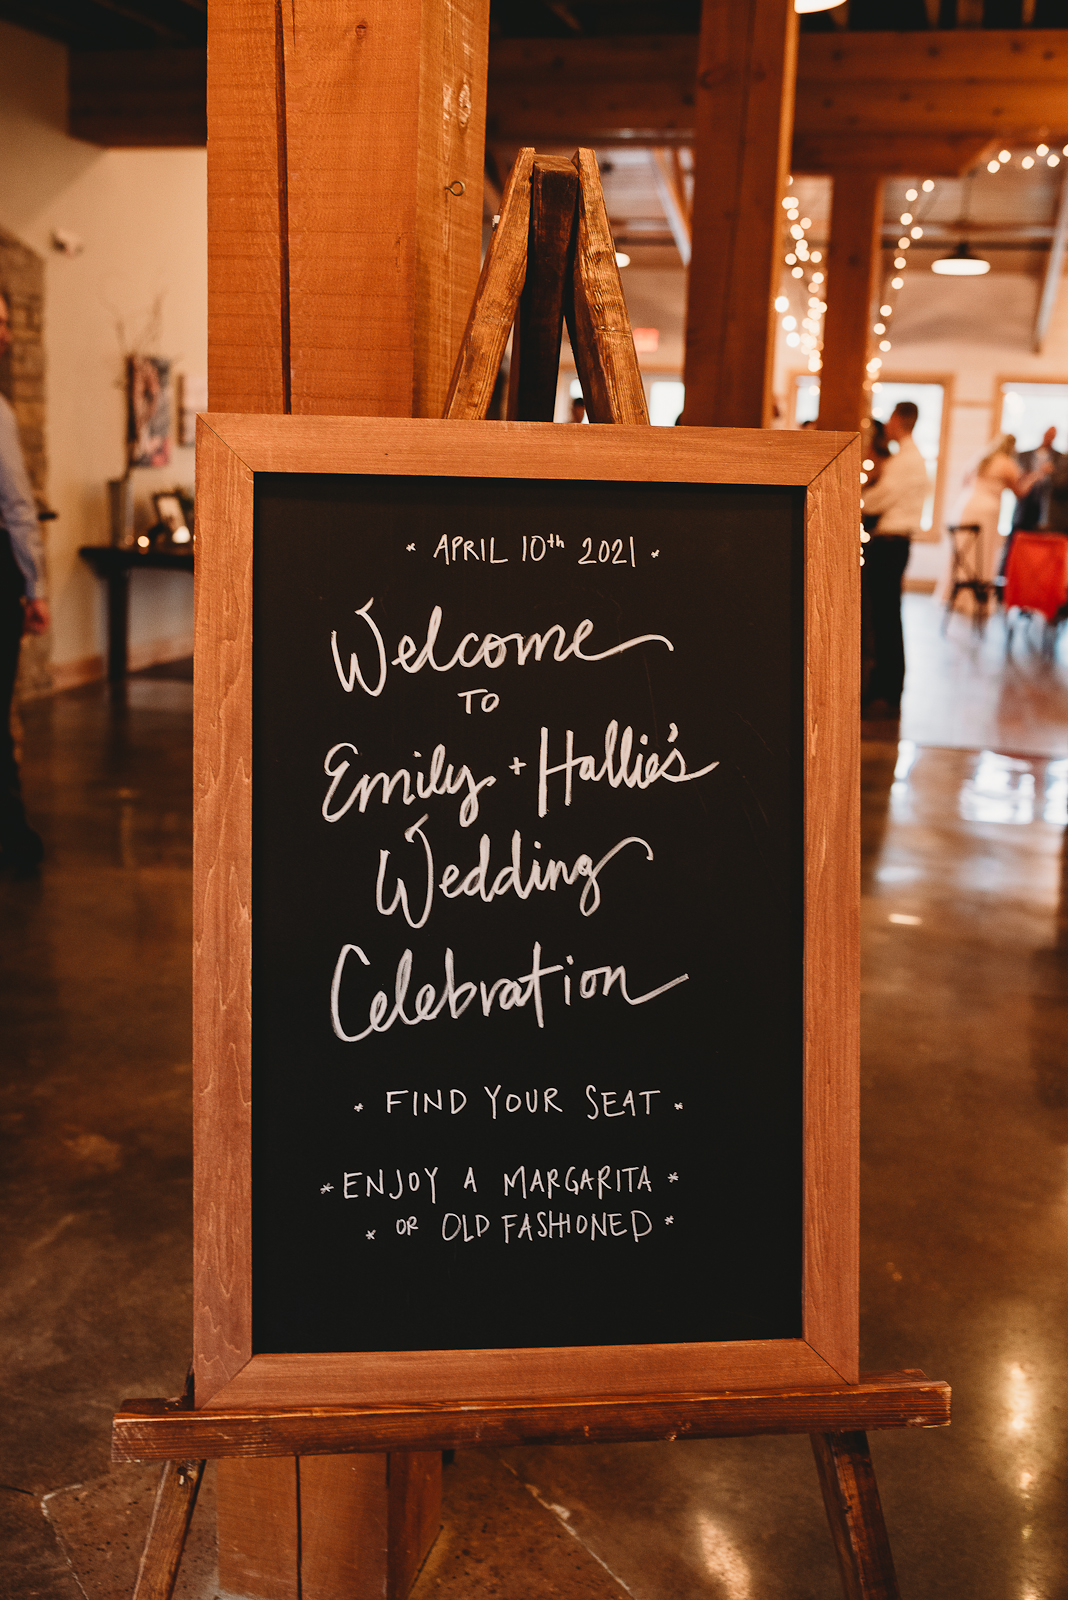 * APRIL 10th 2021 *
Welcome
TO
Emily + Hallie's
Wedding
Celebration
* FIND YOUR SEAT *
* ENJOY A MARGARITA *
* OR OLD FASHIONED *